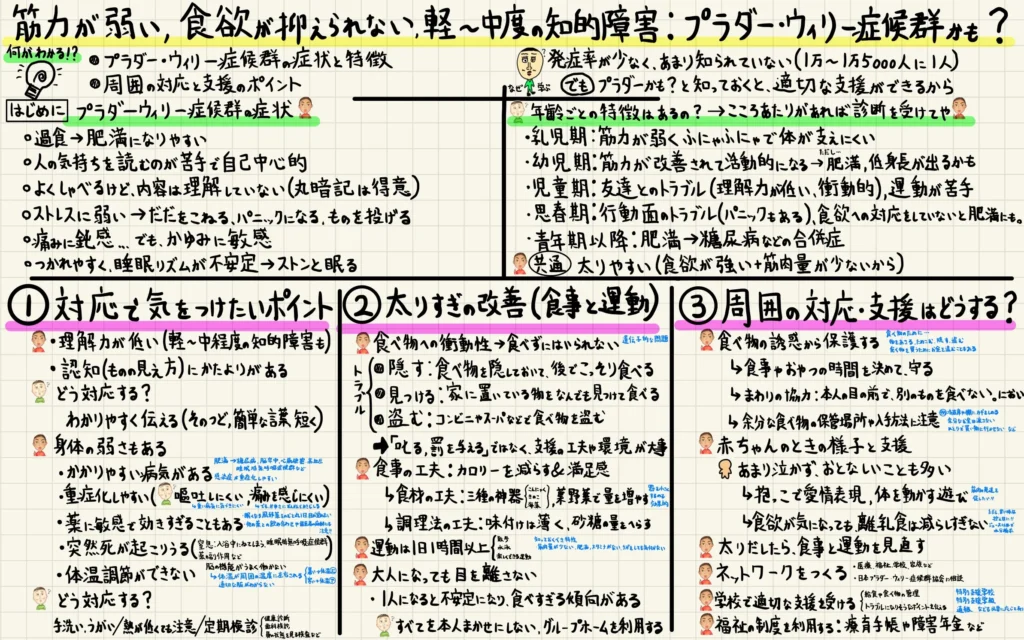 筋力が弱い,食欲が抑えられない,軽〜中度の知的障害:プラダー・ウィリー症候群かも?
何がわかる!?
プラダー・ウィリー症候群の症状と特徴
周囲の対応と支援のポイント
なぜ学ぶ
発症率が少なく、あまり知られていない(1万〜1万5000人に1人)
でも プラダーかも?と知っておくと、適切な支援ができるから
はじめに プラダーウィリー症候群の症状
○過食→肥満になりやすい
○人の気持ちを読むのが苦手で自己中心的
○よくしゃべるけど、内容は理解していない(丸暗記は得意)
○ストレスに弱い→だだをこねる、パニックになる、ものを投げる
○痛みに鈍感...でも、かゆみに敏感
○つかれやすく、睡眠リズムが不安定→ストンと眠る
年齢ごとの特徴はあるの?→こころあたりがあれば診断を受けてや
・乳児期:筋力が弱くふにゃふにゃで体が支えにくい
・幼児期:筋力が改善されて活動的になる→肥満,低身長が出るかも
・児童期:友達とのトラブル(理解力が低い、衝動的),運動が苦手
・思春期:行動面のトラブル(パニックもある)、食欲への対応をしていないと肥満にも。
・青年期以降:肥満→糖尿病などの合併症
共通 太りやすい(食欲が強い+筋肉量が少ないから)
①対応で気をつけたいポイント
・理解力が低い(軽〜中程度の知的障害も)
・認知(ものの見え方)にかたよりがある
どう対応する?
わかりやすく伝える(そのつど、簡単な言葉,短く)
身体の弱さもある
・かかりやすい病気がある
・重症化しやすい(嘔吐しにくい,痛みを感じにくい)
・薬に敏感で効きすぎることもある
・突然死が起こりうる
・体温調節ができない
どう対応する?
手洗い、うがい/熱が低くても注意/定期検診
②太りすぎの改善(食事と運動)
食べ物への衝動性→食べずにはいられない 遺伝子的な問題
トラブル
隠す:食べ物を隠しておいて、後でこっそり食べる
見つける:家に置いている物をなんでも見つけて食べる
盗む:コンビニやスーパなどで食べ物を盗む
➡「叱る、罰を与える」ではなく、支援の工夫や環境が大事
食事の工夫:カロリーを減らす&満足感
↳食材の工夫:三種の神器 こんにゃく きのこ 海藻 ,葉野菜で量を増やす
↳調理法の工夫:味付けは薄く、砂糖の量をへらす
運動は1日1時間以上
大人になっても目を離さない
・1人になると不安定になり、食べすぎる傾向がある
すべてを本人まかせにしない,グループホームを利用する
③周囲の対応・支援はどうする?
食べ物の誘惑から保護する
↳食事やおやつの時間を決めて、守る
↳まわりの協力:本人の目の前で、別のものを食べない。におい
↳余分な食べ物の保管場所や入手方法に注意
赤ちゃんのときの様子と支援
あまり泣かず、おとなしいことも多い
↳抱っこで愛情表現,体を動かす遊び
↳食欲が気になっても、離乳食は減らしすぎない
太りだしたら、食事と運動を見直す
ネットワークをつくる ・医療、福祉、学校、家族など
・日本プラダー・ウィリー症候群協会に相談
学校で適切な支援を受ける
福祉の制度を利用する:療育手帳や障害年金など